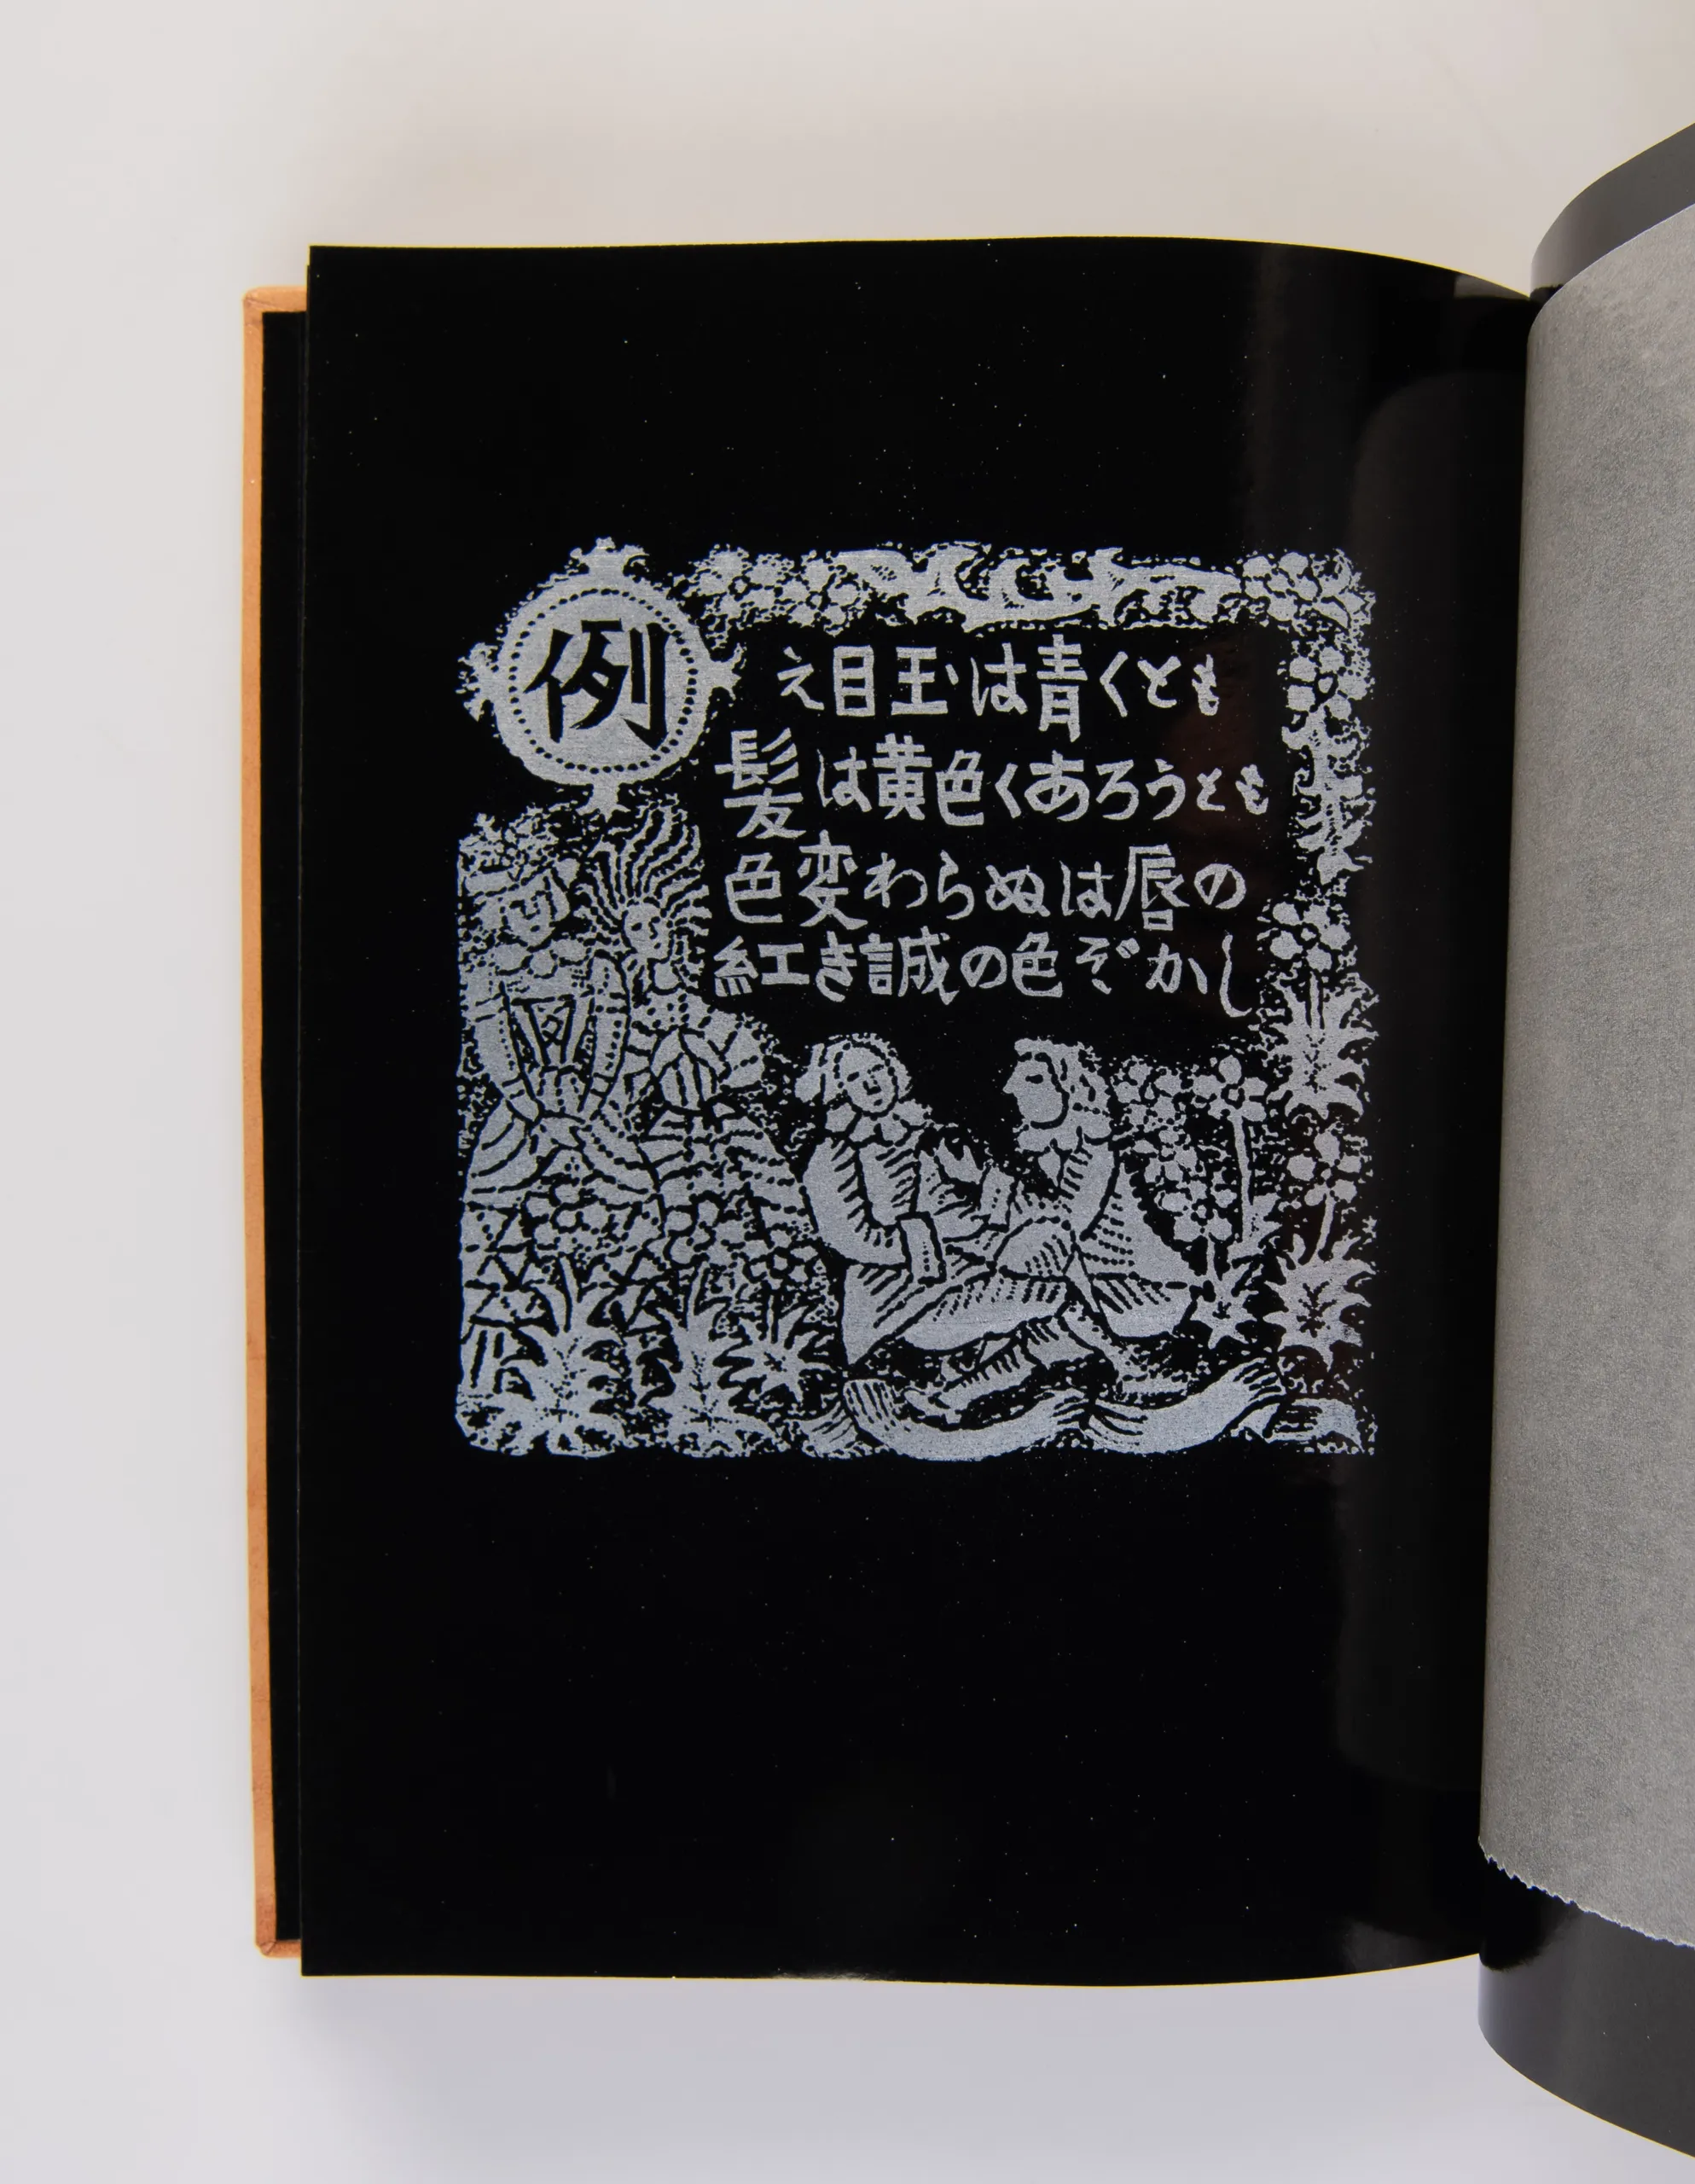 例え目玉は青くとも
髪は黄色くあろうとも
色変わらぬは唇の
紅き誠の色ぞかし